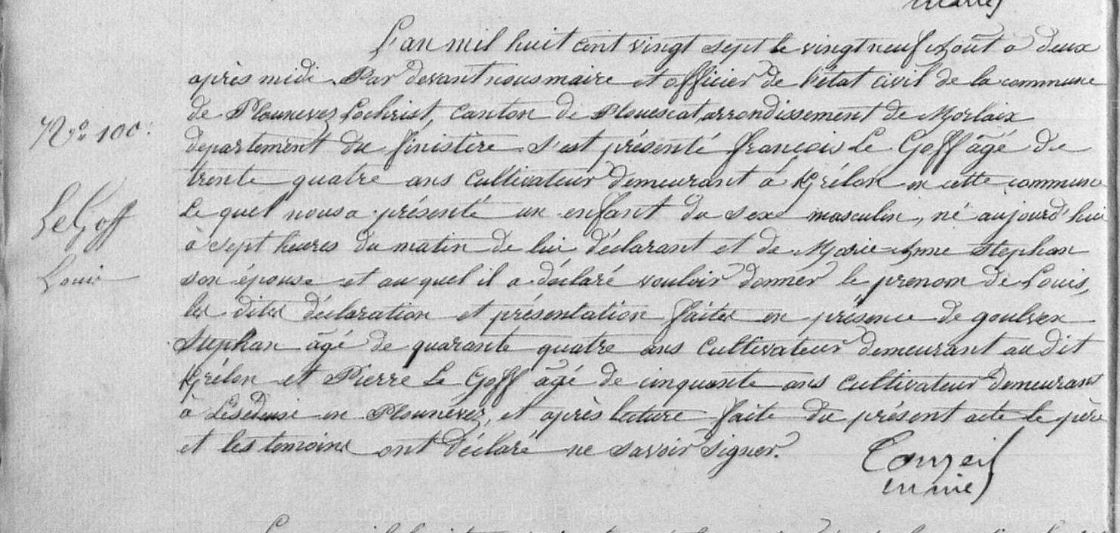 maire
L'an mil huit cent vingt sept le vingt neuf Août à deux
après midi Par devant nous maire et officier de l'état civil de la commune
de Plounevez Lochrist, canton de Plouescat, arrondissement de Morlaix
Nº 100.
département du finistère s'est présenté françois Le Goff âgé de
trente quatre ans cultivateur demeurant à Kgrélon en cette commune
Le Goff
Louis
Le quel nous a présenté un enfant du sexe masculin, né aujourd'hui
à sept heures du matin de lui déclarant et de Marie-Anne Stephan
son épouse et auquel il a déclaré vouloir donner le prenom de Louis,
les dites déclaration et présentation faites en présence de goulven
Stephan âgé de quarante quatre ans cultivateur demeurant au dit
Kgrélon et Pierre Le Goff âgé de cinquante ans cultivateur demeurant
à en Plounévez, et après lecture faite du présent acte le père
et les temoins ont déclaré ne savoir signer.
maire